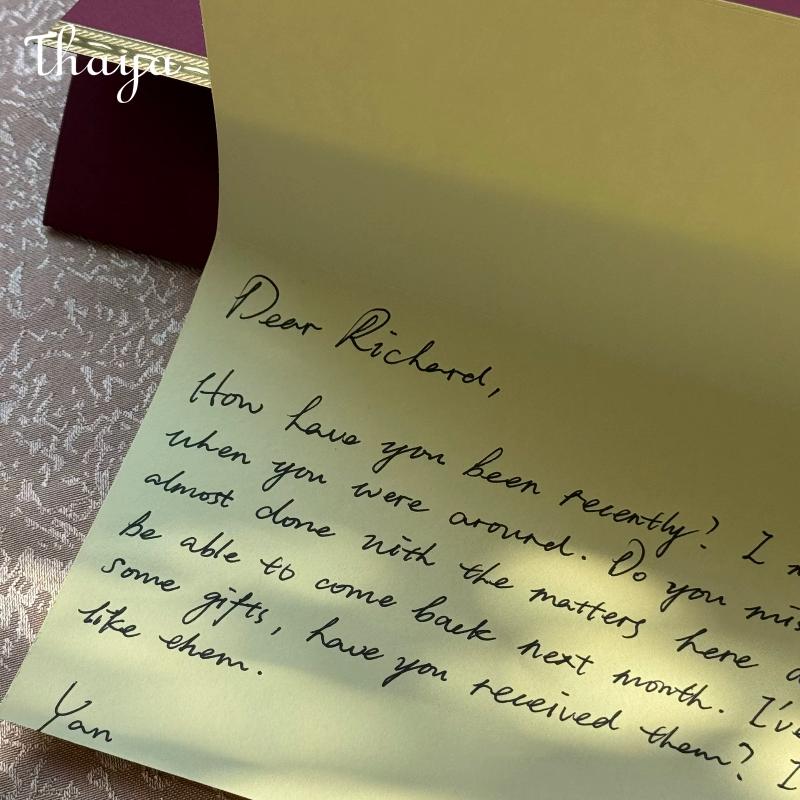 Thaya
Dear Richard,
How have you been recently? I
when you were around. Do you
almost done with the matters here
be able to come back next month. I've
some gifts, have you received them? I
like them.
Yan